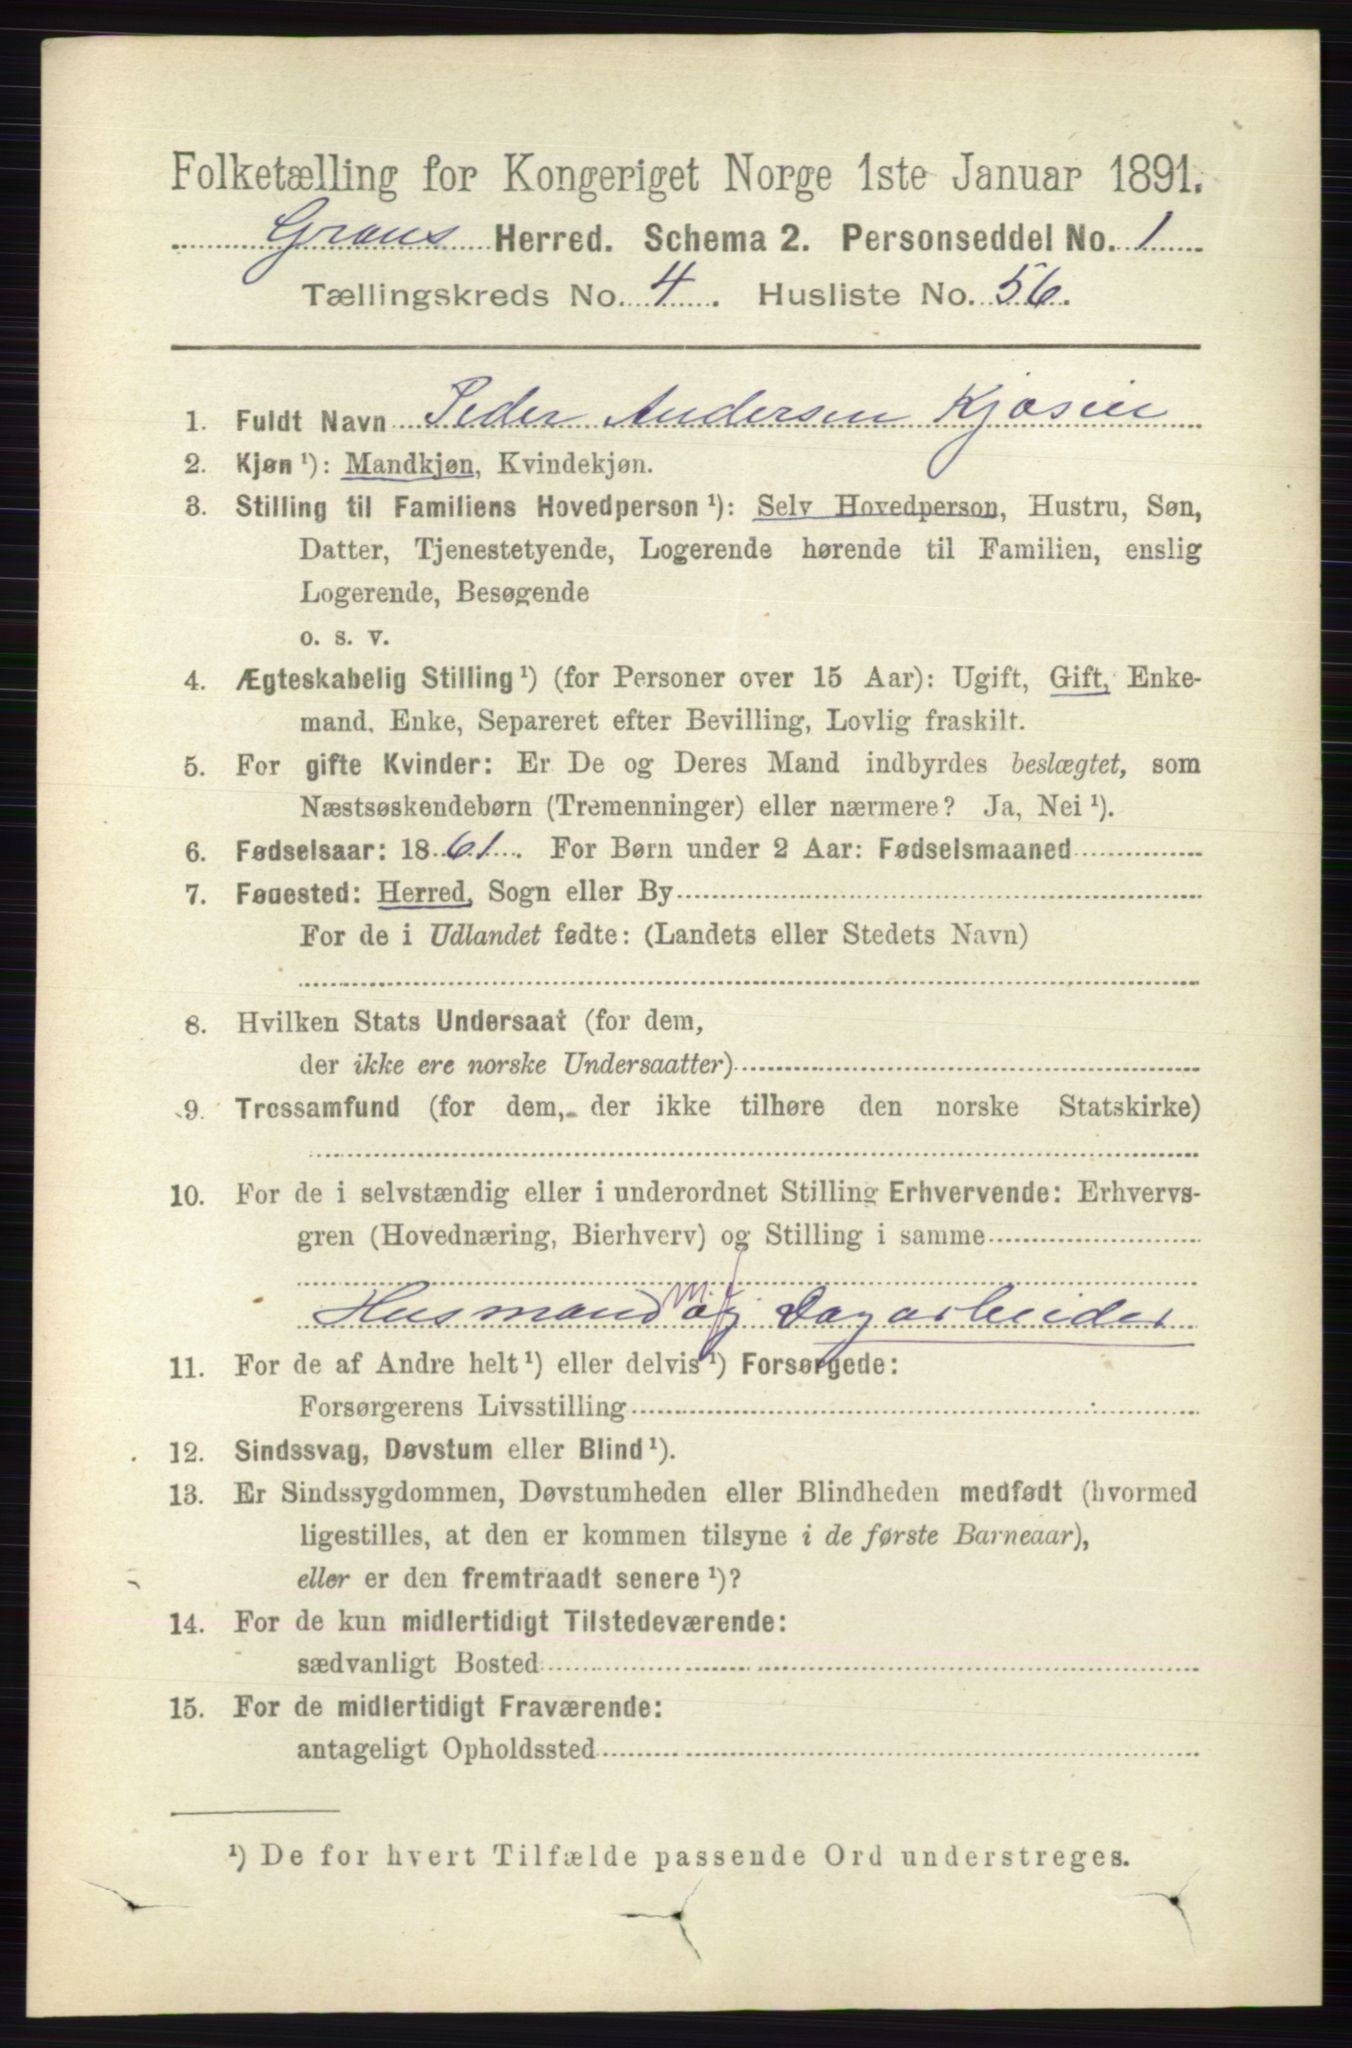 Folketælling for Kongeriget Norge 1ste Januar 1891.
Grans Herred. Schema 2. Personseddel No. 1
Tællingskreds No. 4. Husliste No. 56.
1. Fuldt Navn Peder Andersen Kjosen
2. Kjøn ¹): Mandkjøn, Kvindekjøn.
3. Stilling til Familiens Hovedperson ¹): Selv Hovedperson, Hustru, Søn,
Datter, Tjenestetyende, Logerende hørende til Familien, enslig
Logerende, Besøgende
o. s. v.
4. Ægteskabelig Stilling ¹) (for Personer over 15 Aar): Ugift, Gift, Enke-
mand, Enke, Separeret efter Bevilling, Lovlig fraskilt.
5. For gifte Kvinder: Er De og Deres Mand indbyrdes beslægtet, som
Næstsøskendebørn (Tremenninger) eller nærmere? Ja, Nei ¹).
6. Fødselsaar: 1861. For Børn under 2 Aar: Fødselsmaaned
7. Fødested: Herred, Sogn eller By
For de i Udlandet fødte: (Landets eller Stedets Navn)
8. Hvilken Stats Undersaat (for dem,
der ikke ere norske Undersaatter)
9. Trossamfund (for dem, der ikke tilhøre den norske Statskirke)
10. For de i selvstændig eller i underordnet Stilling Erhvervende: Erhvervs-
gren (Hovednæring, Bierhverv) og Stilling i samme
m. j.
Husmand og Dagarbeider
11. For de af Andre helt ¹) eller delvis ¹) Forsørgede:
Forsørgerens Livsstilling
12. Sindssvag, Døvstum eller Blind ¹).
13. Er Sindssygdommen, Døvstumheden eller Blindheden medfødt (hvormed
ligestilles, at den er kommen tilsyne i de første Barneaar),
eller er den fremtraadt senere ¹)?
14. For de kun midlertidigt Tilstedeværende:
sædvanligt Bosted
15. For de midlertidigt Fraværende:
antageligt Opholdssted
¹) De for hvert Tilfælde passende Ord understreges.